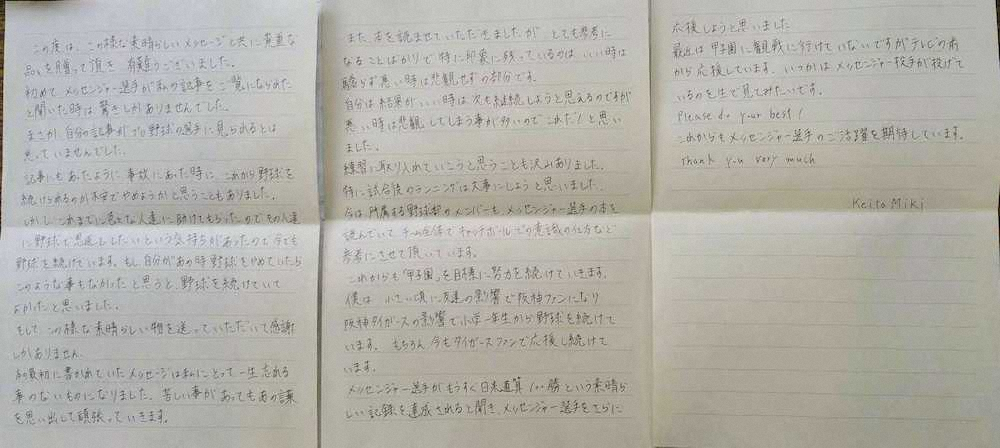 この度は、この様な素晴らしいメッセージと共に貴重な
品々を贈って頂き 有難うございました。
初めて メッセンジャー選手が私の記事をご覧になられた
と聞いた時は驚きしかありませんでした。
まさか、自分の記事がプロ野球の選手に見られるとは
思っていませんでした。
記事にもあったように事故にあった時に、これから野球を
続けられるのか不安でやめようかと思うこともありました。
しかし、これまでに色々な人達に助けてもらったのでその人達
に野球で恩返ししたいという気持ちがあったので今でも
野球を続けています。もし自分があの時野球をやめていたら
このような事もなかったと思うと、野球を続けていて
よかったと思いました。
そして、この様な素晴らしい物を送っていただいて感謝
しかありません。
本の最初に書かれていたメッセージは私にとって一生忘れる
事のないものになりました。苦しい事があってもあの言葉
を思い出して頑張っていきます。
また、本を読ませていただきましたが、とても参考に
なることばかりで特に印象に残っているのは、いい時は
驕らず悪い時は悲観せずの部分です。
自分は結果がいい時は次も継続しようと思えるのですが
悪い時は悲観してしまう事が多いのでこれだ!と思い
ました。
練習に取り入れていこうと思うことも沢山ありました。
特に試合後のランニングは大事にしようと思いました。
今は、所属する野球部のメンバーも、メッセンジャー選手の本を
読んでいて、チーム全体でキャッチボールでの意識の仕方など
参考にさせて頂いています。
これからも「甲子園」を目標に努力を続けていきます。
僕は 小さい頃に友達の影響で阪神ファンになり
阪神タイガースの影響で小学一年生から野球を続けて
います。もちろん、今もタイガースファンで応援し続けて
います。
メッセンジャー選手がもうすぐ日米通算100勝という素晴ら
しい記録を達成されると聞き、メッセンジャー選手をさらに
応援しようと思いました
最近は甲子園に観戦に行けていないですがテレビの前
から応援しています。いつかはメッセンジャー投手が投げて
いるのを生で見てみたいです。
Please do your best!
これからもメッセンジャー選手のご活躍を期待しています。
Thank you very much
Keito Miki